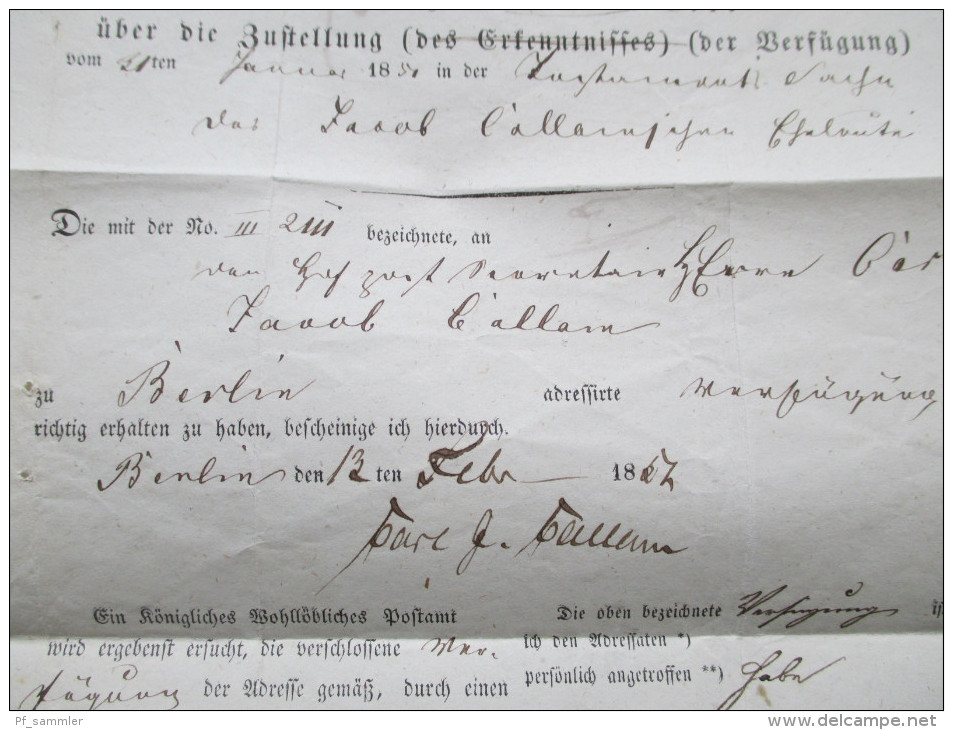 über die Zustellung (des Erkenntnisses) (der Verfügung)
vom 21ten Januar 1851 in der Testaments Sache
der Jacob Callamschen Eheleute
Die mit der No. III bezeichnete, an
den Hof post Secretair Herrn
Jacob Callam
zu Berlin adressirte Verfügung
richtig erhalten zu haben, bescheinige ich hierdurch.
Berlin den 12 ten Febr 1852
Carl J. Callam
Ein Königliches Wohllöbliches Postamt
wird ergebenst ersucht, die verschlossene Ver-
fügung der Adresse gemäß, durch einen
Die oben bezeichnete Verfügung
ich den Adressaten *)
persönlich angetroffen **) habe
Pf_sammler
www.delcampe.net